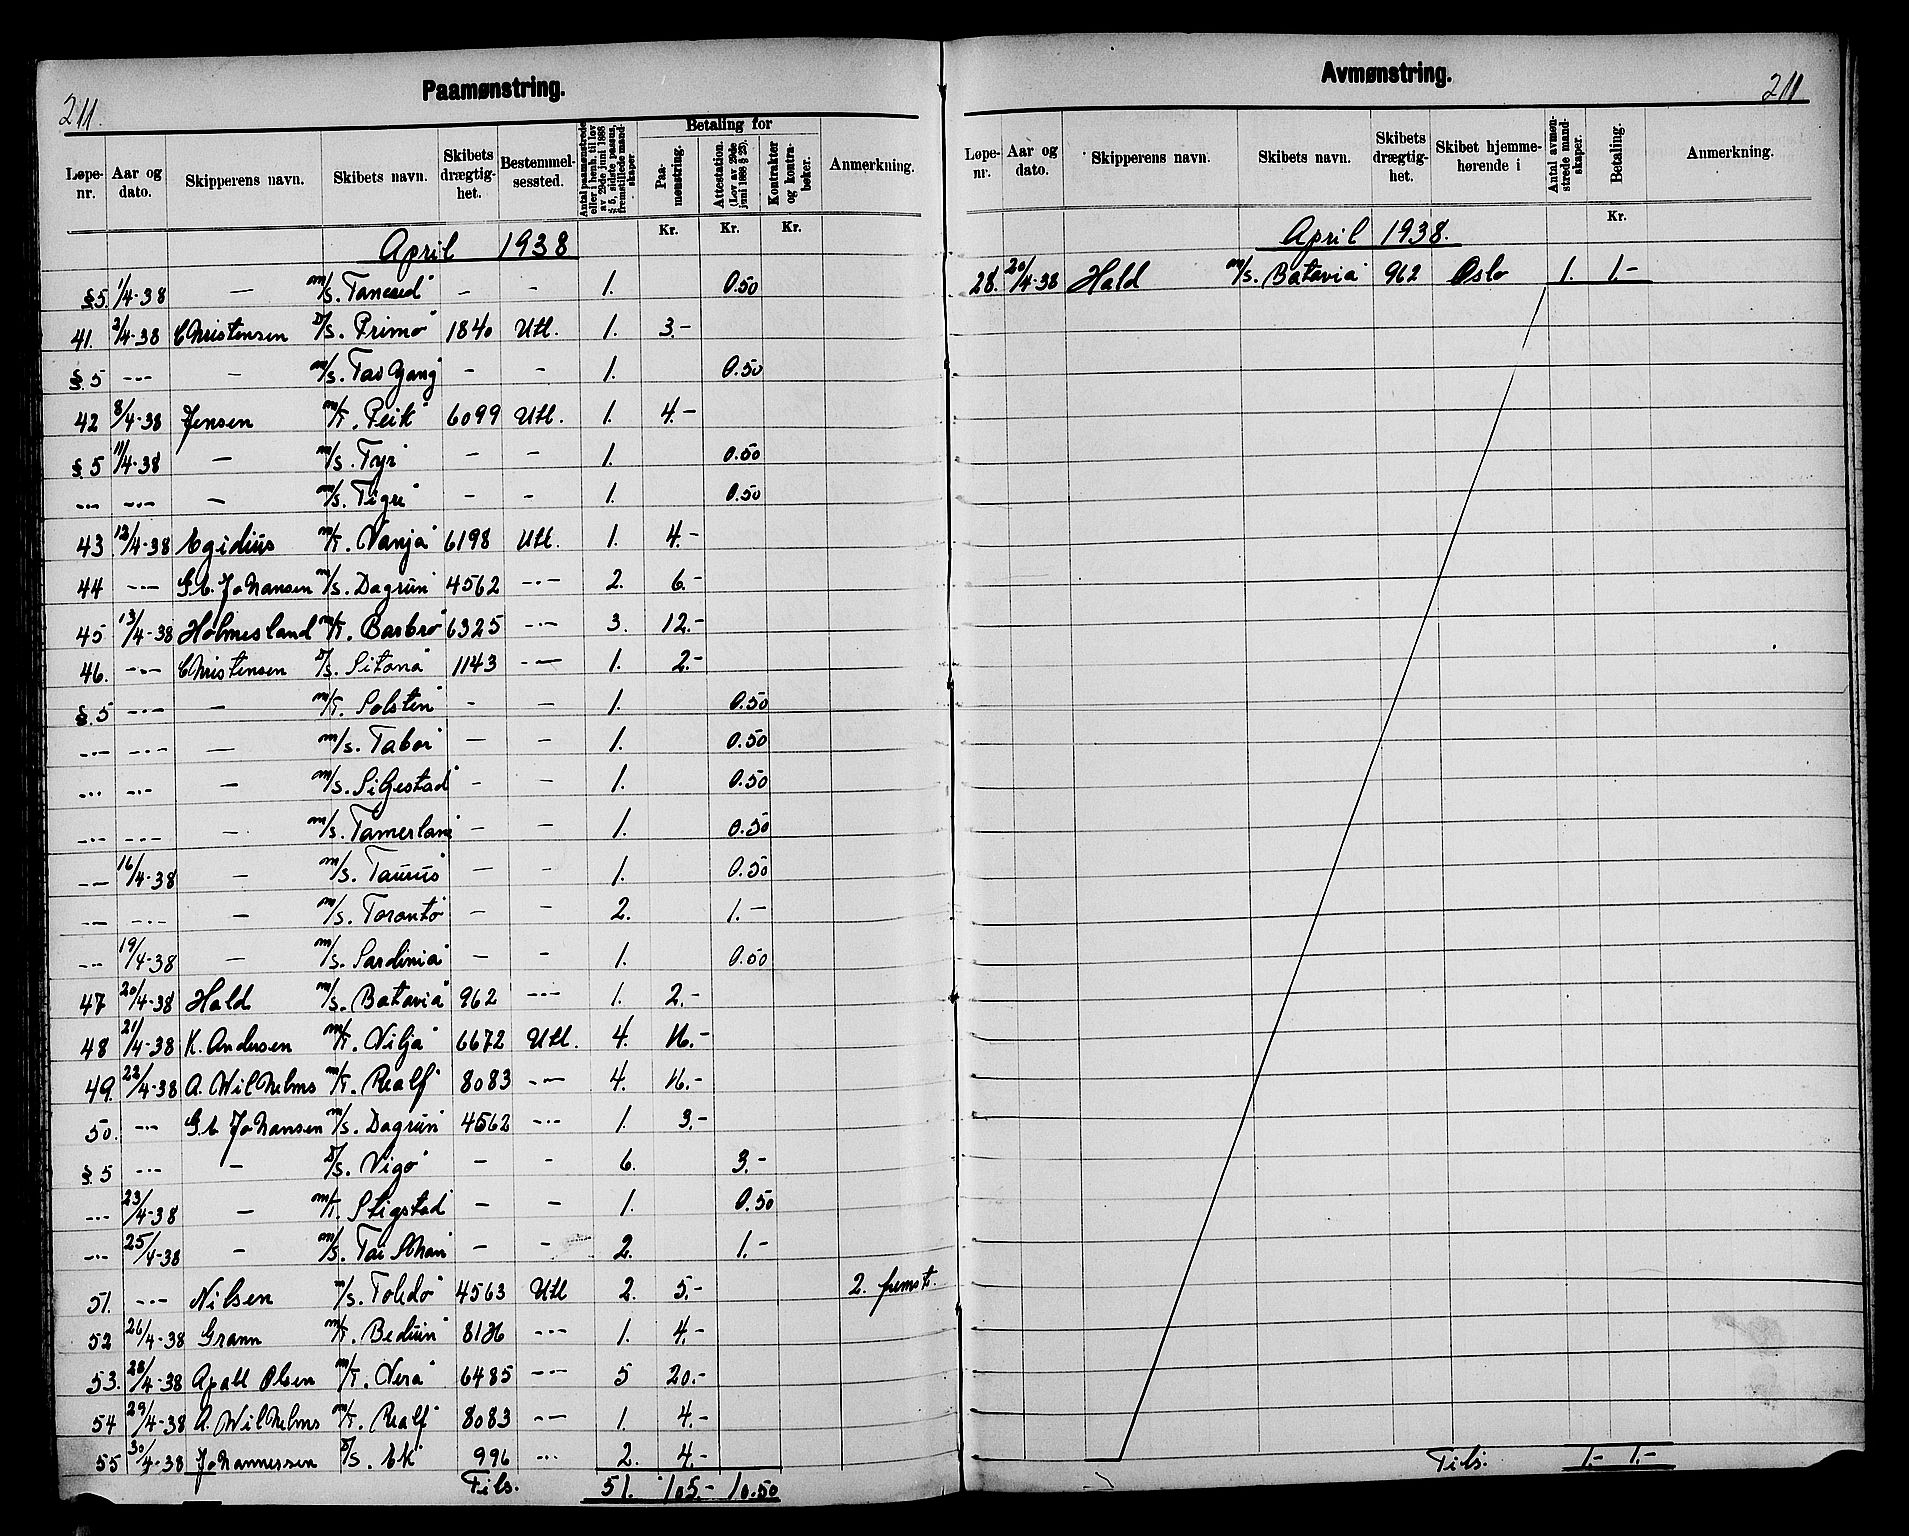 211.
Paamønstring.
Løpe-nr. Aar og dato. Skipperens navn. Skibets navn. Skibets drægtig-het. Bestemmel-sessted. Antal paamønstrede eller i henh. til lov av 29de juni 1888 § 5, sidste passus, fremstillede mand-skaper. Betaling for Paa-mønstring. Attestation. (Lov av 29de juni 1888 § 23). Kontrakter og kontra-bøker. Anmerkning.
Kr. Kr. Kr.
April 1938
§5. 1/4-38 — m/s. Tancred — — 1. 0.50
41. 2/4-38 Christensen D/s. Primo 1840 Utl. 1. 3.-
§.5 -..- - m/s. Tai Yang - - 1. 0.50
42 8/4-38 Jensen m/T. Peik 6099 Utl. 1. 4.-
§.5 11/4-38 — m/s. Tyr — — 1. 0.50
-..- -..- — m/s. Tigre - - 1. 0.50
43 12/4-38 Egidius m/T. Vanja 6198 Utl. 1. 4.-
44 -..- G.C. Johansen m/s. Dagrun 4562 -..- 2. 6.-
45 13/4-38 Holmesland m/T. Barbro 6325 -..- 3. 12.-
46. -..- Christensen D/s. Sitona 1143 -..- 1. 2.-
§.5 -..- - m/T. Solsten - - 1. 0.50
-..- -..- — m/s. Tabor — - 1. 0.50
-..- -..- — m/s. Siljestad - - 1. 0.50
-..- -..- - m/s. Tamerlane - - 1. 0.50
-..- 16/4-38 - m/s. Taurus - - 1. 0.50
-..- -..- - m/s. Toronto - - 2. 1.-
-..- 19/4-38 - m/s. Sardinia - - 1. 0.50
47 20/4-38 Hald m/s. Batavia 962 -..- 1. 2.-
48 21/4-38 K. Andersen m/T. Vilja 6672 Utl. 4. 16.-
49. 22/4-38 A. Wilhelms m/T. Realf 8083 -..- 4. 16.-
50. -..- G.C. Johansen m/s. Dagrun 4562 -..- 1. 3.-
§.5 -..- - D/s. Vigo - - 6. 3.-
-..- 23/4-38 - m/T. Stigstad - - 1. 0.50
-..- 25/4-38 - m/s. Tai Shan - - 2. 1.-
51. -..- Nilsen m/s. Toledo 4563 Utl 2. 5.- 2. fremst.
52 26/4-38 Grann m/T. Beduin 8136 -..- 1. 4.-
53. 28/4-38 Olsen m/T. Vera 6485 -..- 5 20.-
54 29/4-38 A. Wilhelms m/T. Realf 8083 -..- 1. 4.-
55 30/4-38 Johannessen D/s. Ek 996 -..- 2. 4.-
Tils. 51. 105.- 10.50
Avmønstring.
211
Løpe-nr. Aar og dato. Skipperens navn. Skibets navn. Skibets drægtig-het. Skibet hjemme-hørende i Antal avmøn-strede mand-skaper. Betaling. Anmerkning.
Kr.
April 1938.
28. 20/4-38 Hald m/s. Batavia 962 Oslo 1. 1.-
Tils. 1.- 1.-